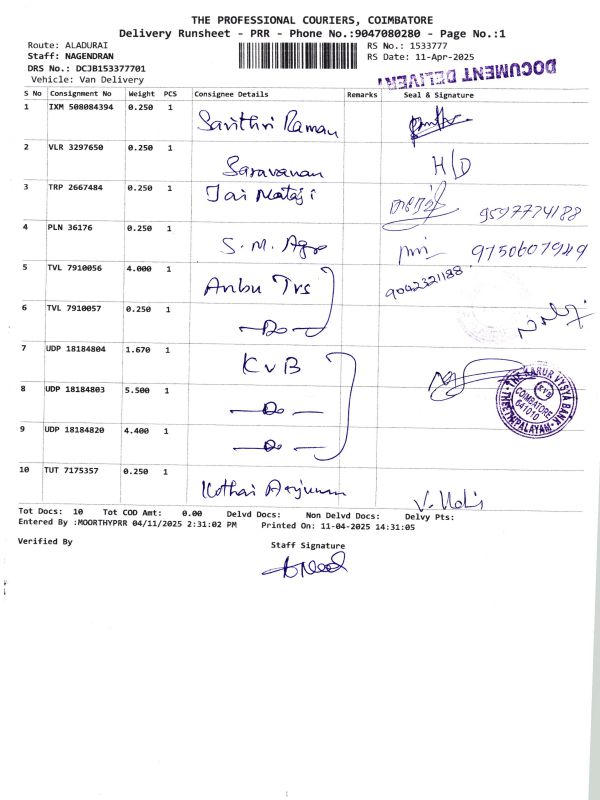 THE PROFESSIONAL COURIERS, COIMBATORE
Delivery Runsheet - PRR - Phone No.:9047080280 - Page No.:1
Route: ALADURAI RS No.: 1533777
Staff: NAGENDRAN RS Date: 11-Apr-2025
DRS No.: DCJB153377701
Vehicle: Van Delivery
DOCUMENT DELIVERY
S No Consignment No Weight PCS Consignee Details Remarks Seal & Signature
1 IXM 508084394 0.250 1 Savithri Raman
2 VLR 3297650 0.250 1 Saravanan H/D
3 TRP 2667484 0.250 1 Jai Mataji 9597774188
4 PLN 36176 0.250 1 S. M. Agro 9750607949
5 TVL 7910056 4.000 1 Anbu Trs 9042321188
6 TVL 7910057 0.250 1 —Do—
7 UDP 18184804 1.670 1 KVB
8 UDP 18184803 5.500 1 —Do—
9 UDP 18184820 4.400 1 —Do—
THE KARUR VYSYA BANK
COIMBATORE
641010
THEETHIPALAYAM
10 TUT 7175357 0.250 1 Kothai Arjunan
Tot Docs: 10 Tot COD Amt: 0.00 Delvd Docs: Non Delvd Docs: Delvy Pts:
Entered By :MOORTHYPRR 04/11/2025 2:31:02 PM Printed On: 11-04-2025 14:31:05
Verified By Staff Signature